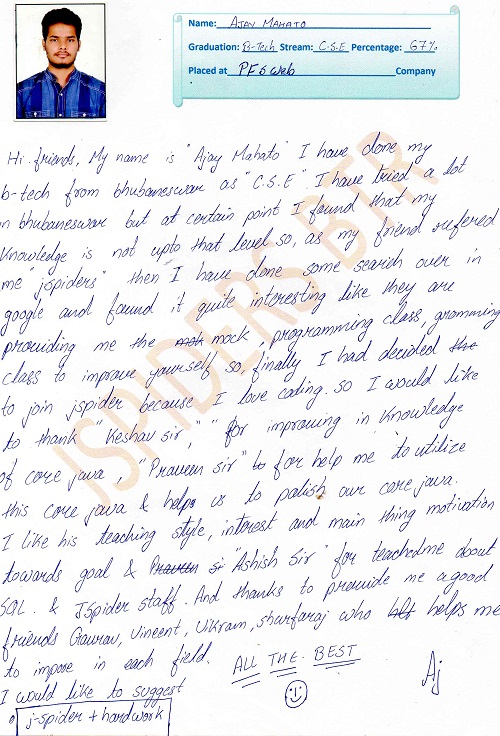 Name: AJAY MAHATO
Graduation: B-Tech Stream: C.S.E Percentage: 67%
Placed at PFSweb Company
Hi friends, My name is "Ajay Mahato" I have done my
b-tech from bhubaneswar as "C.S.E". I have tried a lot
in bhubaneswar but at certain point I found that my
knowledge is not upto that level so, as my friend refered
me "jspiders" then I have done some search over in
google and found it quite interesting like they are
providing me the mock, programming class, gromming
class to improve yourself so, finally I had decided the
to join jspider because I love coding. so I would like
to thank "Keshav sir," " for improving in knowledge
of core java, "Praveen sir" for help me to utilize
this core java & helps us to polish our core java.
I like his teaching style, interest and main thing motivation
towards goal & Praveen sir "Ashish Sir" for teached me about
SQL. & JSpider staff. And thanks to provide me a good
friends Gaurav, Vineent, Vikram, sharfaraj who helps me
to impore in each field. ALL THE BEST
I would like to suggest
j-spider + hardwork
Aj
JSPIDERS BTR